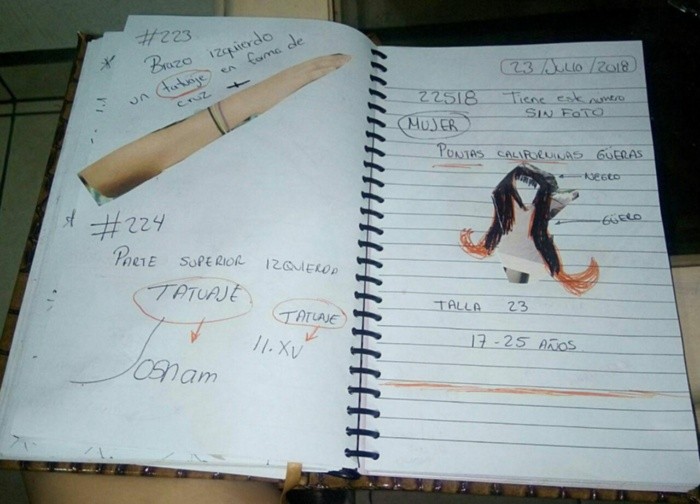 #223
* Brazo izquierdo
un tatuaje en forma de
cruz
* #224
Parte superior izquierda
TATUAJE
TATUAJE
Josnam
11.XV
23/Julio/2018
22518 Tiene este numero
SIN FOTO
MUJER
PUNTAS CALIFORNINAS GÜERAS
NEGRO
GÜERO
TALLA 23
17-25 AÑOS